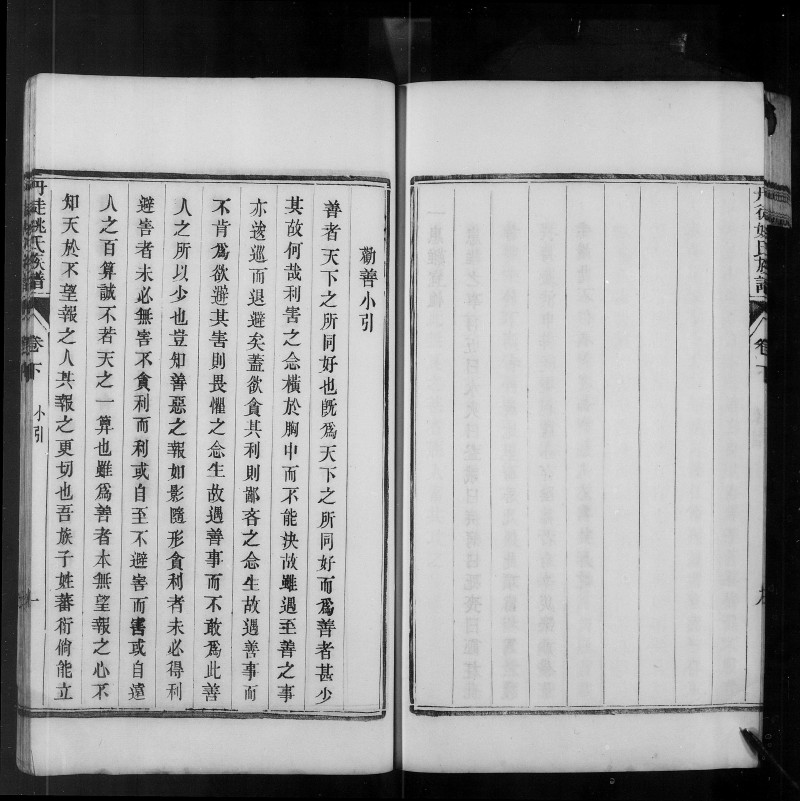 丹徒姚氏族譜
卷下
勸善小引
善者天下之所同好也旣爲天下之所同好而爲善者甚少
其故何哉利害之念橫於胸中而不能決故雖遇至善之事
亦逡巡而退避矣蓋欲貪其利則鄙吝之念生故遇善事而
不肯爲欲避其害則畏懼之念生故遇善事而不敢爲此善
人之所以少也豈知善惡之報如影隨形貪利者未必得利
避害者未必無害不貪利而利或自至不避害而害或自遠
人之百算誠不若天之一算也雖爲善者本無望報之心不
知天於不望報之人其報之更切也吾族子姓蕃衍倘能立
丹徒姚氏族譜
卷下
小引